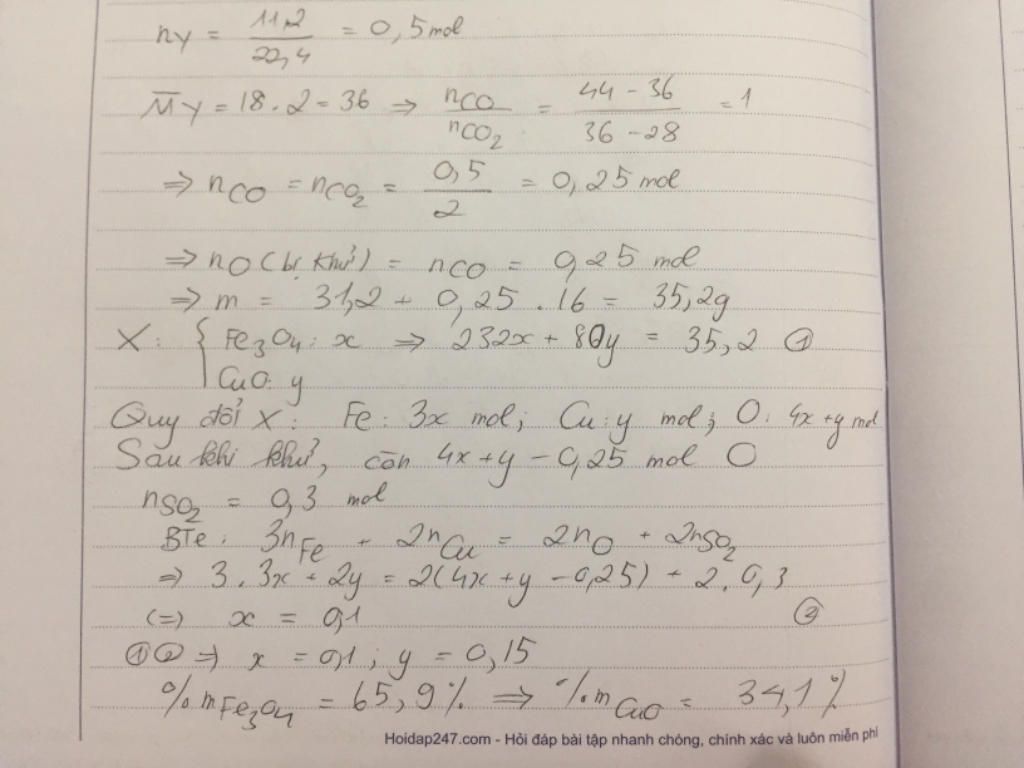 nY = 11,2/22,4 = 0,5 mol
M̅Y = 18.2 = 36 ⇒ nCO/nCO₂ = 44 - 36/36 - 28 = 1
⇒ nCO = nCO₂ = 0,5/2 = 0,25 mol
⇒ nO (bị khử) = nCO = 0,25 mol
⇒ m = 31,2 + 0,25 . 16 = 35,2g
X: { Fe₃O₄: x ⇒ 232x + 80y = 35,2 ①
CuO: y
Quy đổi X: Fe: 3x mol; Cu: y mol; O: 4x+y mol
Sau khi khử, còn 4x+y - 0,25 mol O
nSO₂ = 0,3 mol
BTe: 3nFe + 2nCu = 2nO + 2nSO₂
⇒ 3.3x + 2y = 2(4x+y - 0,25) + 2.0,3
(=) x = 0,1 ②
①② ⇒ x = 0,1; y = 0,15
%mFe₃O₄ = 65,9% ⇒ %mCuO = 34,1%
Hoidap247.com - Hỏi đáp bài tập nhanh chóng, chính xác và luôn miễn phí